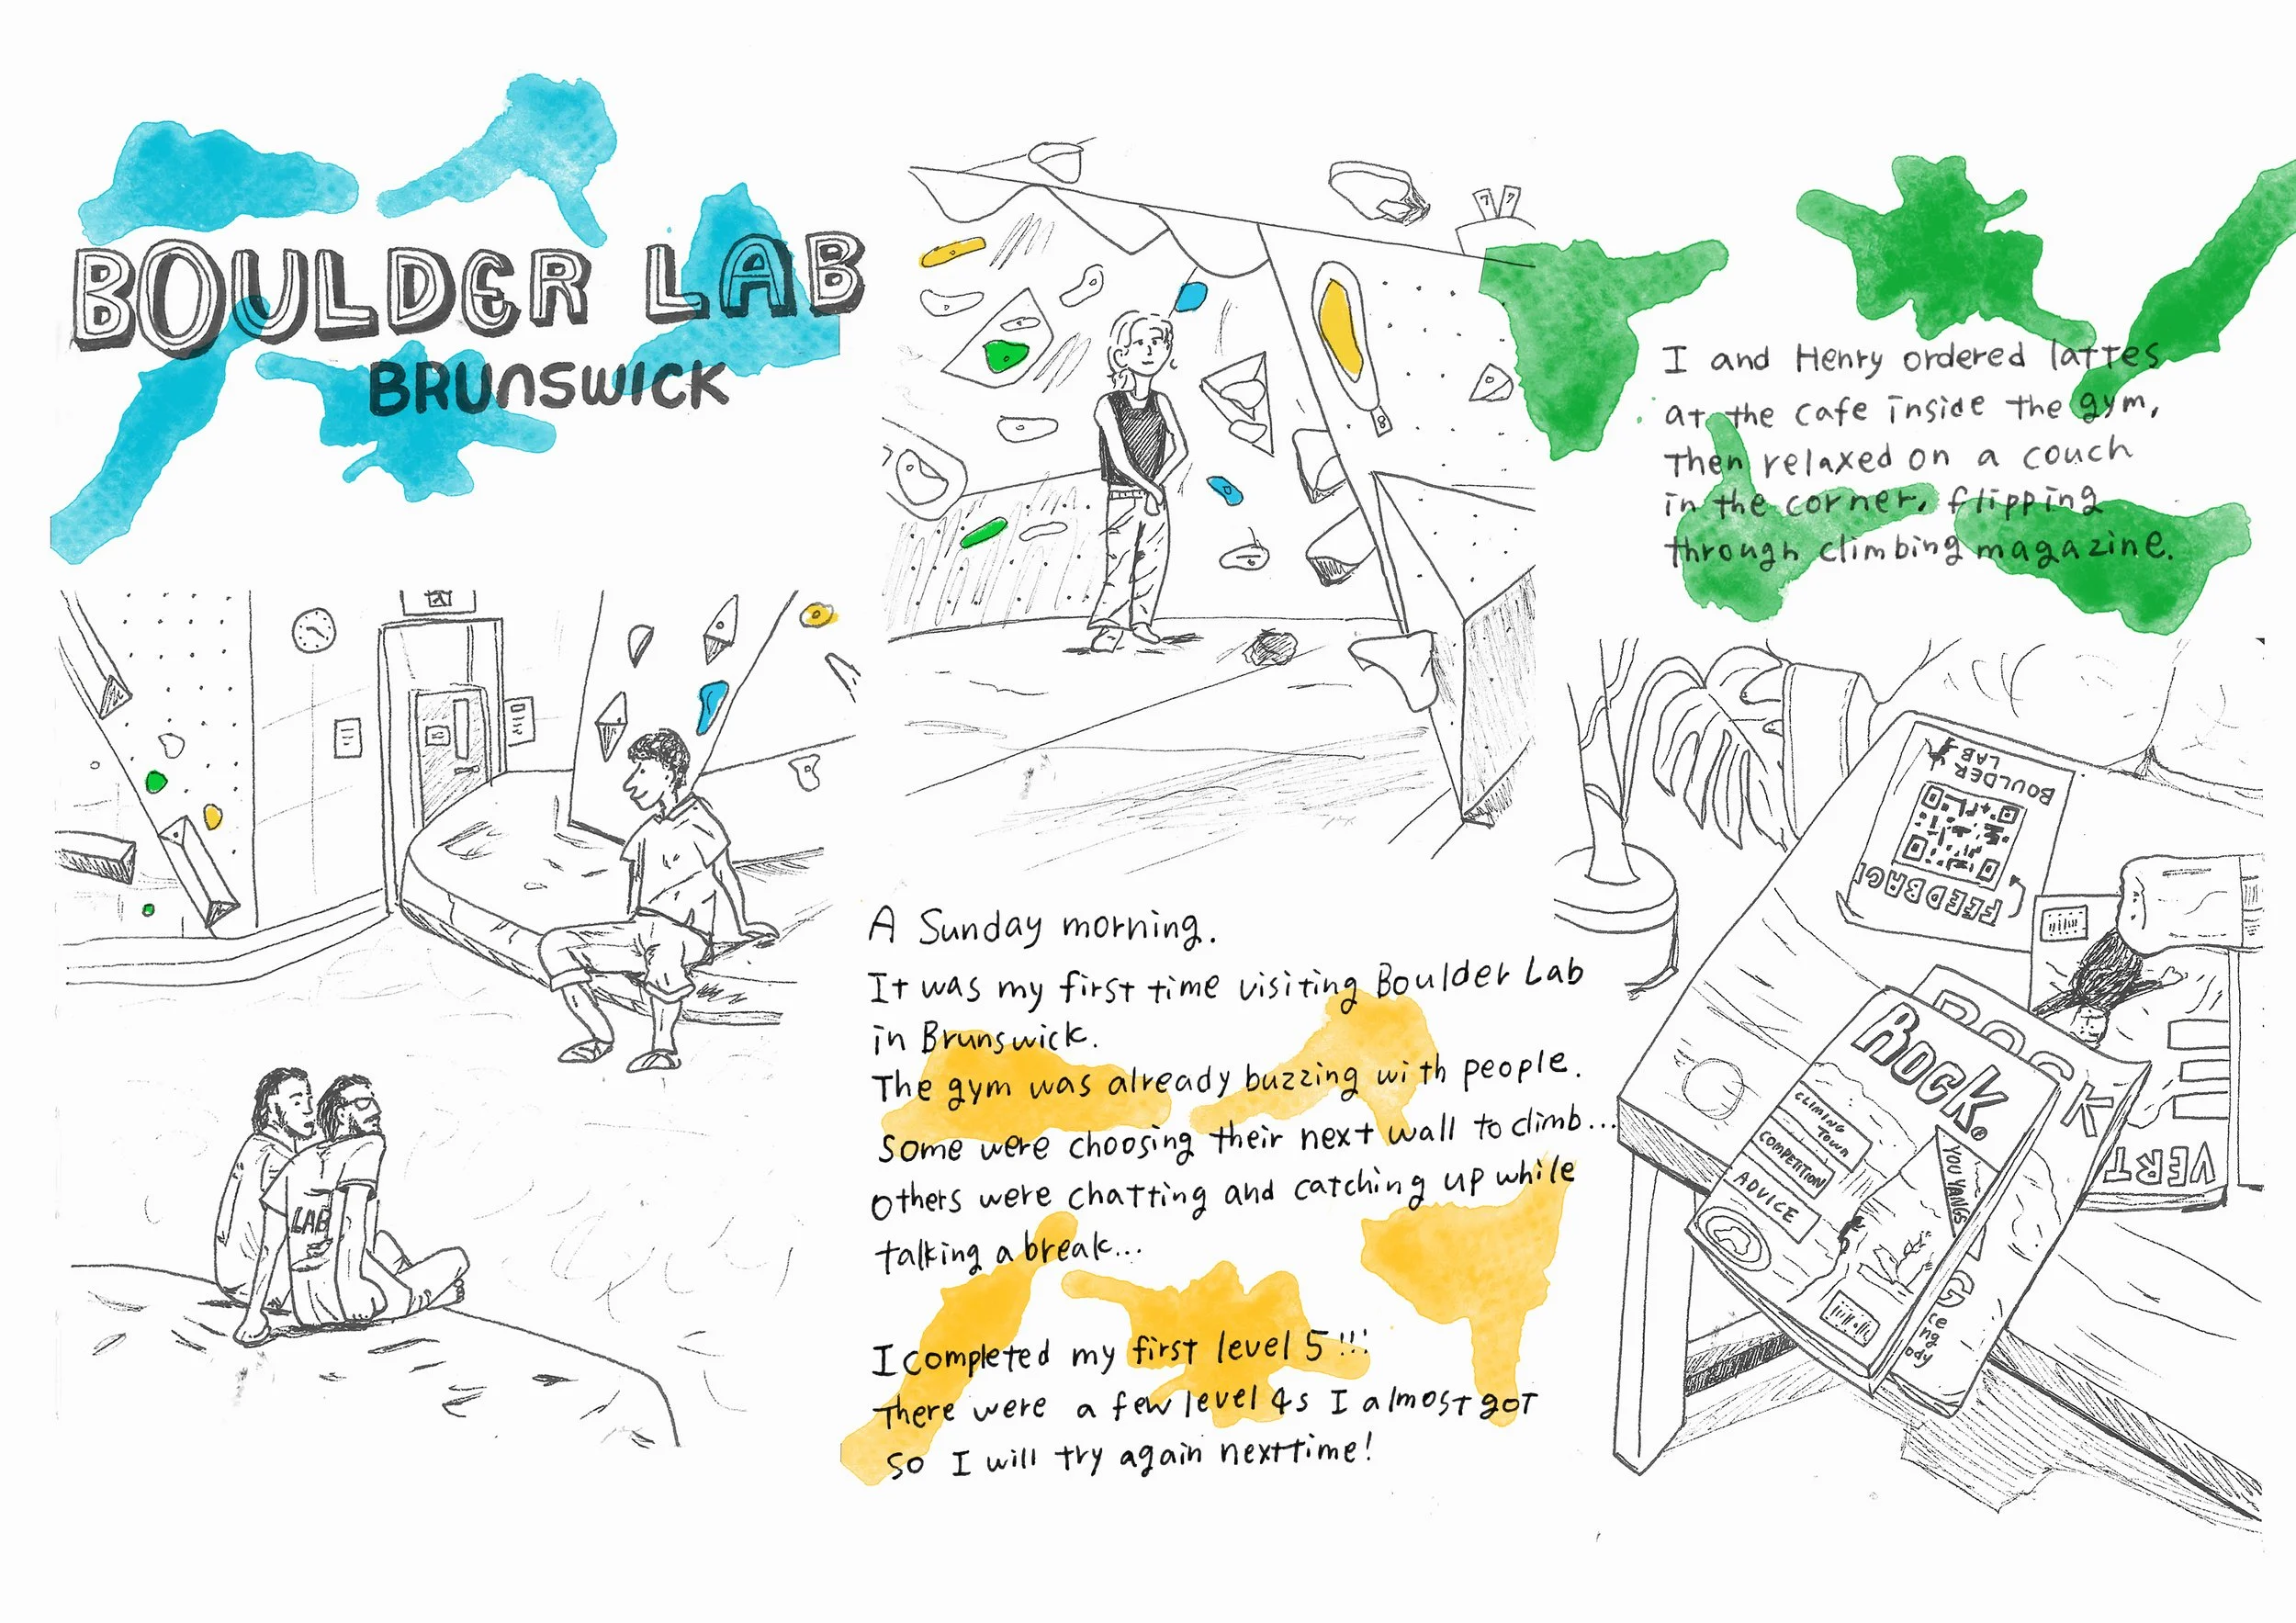 BOULDER LAB
BRUNSWICK
A Sunday morning.
It was my first time visiting Boulder Lab
in Brunswick.
The gym was already buzzing with people.
Some were choosing their next wall to climb...
others were chatting and catching up while
talking a break...
I completed my first level 5!!!
There were a few level 4s I almost got
so I will try again next time!
I and Henry ordered lattes
at the cafe inside the gym,
Then relaxed on a couch
in the corner, flipping
through climbing magazine.
LAB
7 7
8
BOULDER
LAB
FEEDBAC
ROCK
Rock
CLIMING
TOWN
COMPETITION
ADVICE
YOU YANGS
VERT
G
ce
ng
ody